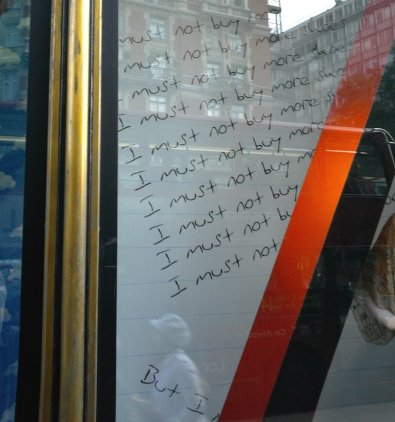 must not buy
must not buy more shoes
must not buy more shoes
I must not buy more shoe
I must not buy more s
I must not buy more
I must not buy mo
I must not buy
I must not bu
I must not
But I